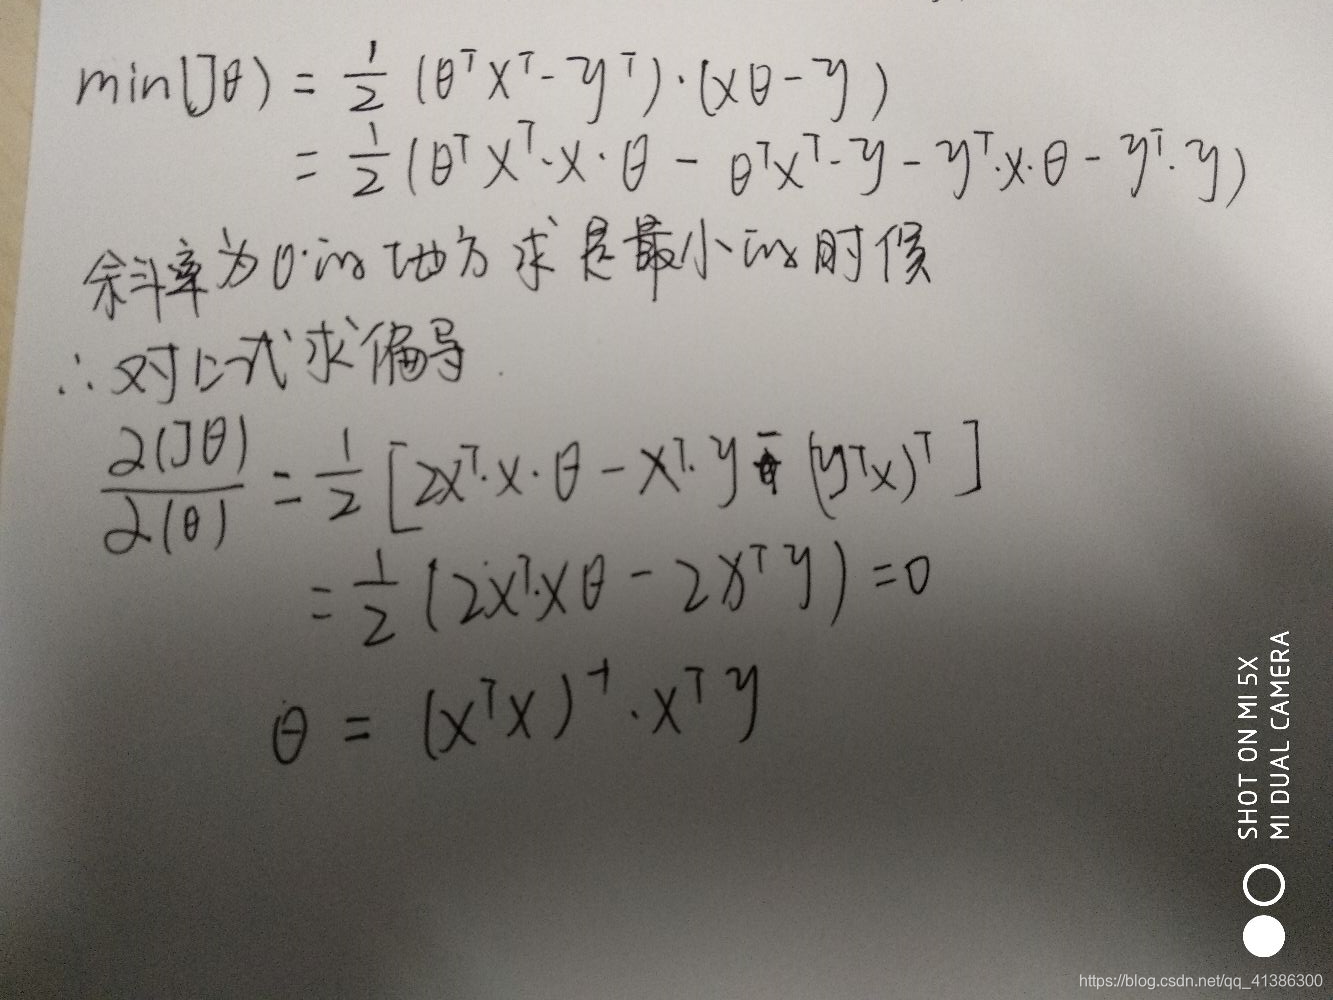 min(Jθ) = 1/2 (θᵀXᵀ - yᵀ)·(xθ - y)
= 1/2 (θᵀXᵀ·X·θ - θᵀXᵀ·y - yᵀ·x·θ - yᵀ·y)
余斜率为0的地方求是最小的时候
∴对上式求偏导
∂(Jθ)/∂(θ) = 1/2 [2Xᵀ·X·θ - Xᵀ·y - (yᵀX)ᵀ]
= 1/2 (2Xᵀ·Xθ - 2Xᵀy) = 0
θ = (XᵀX)⁻¹·Xᵀy
SHOT ON MI 5X
MI DUAL CAMERA
https://blog.csdn.net/qq_41386300